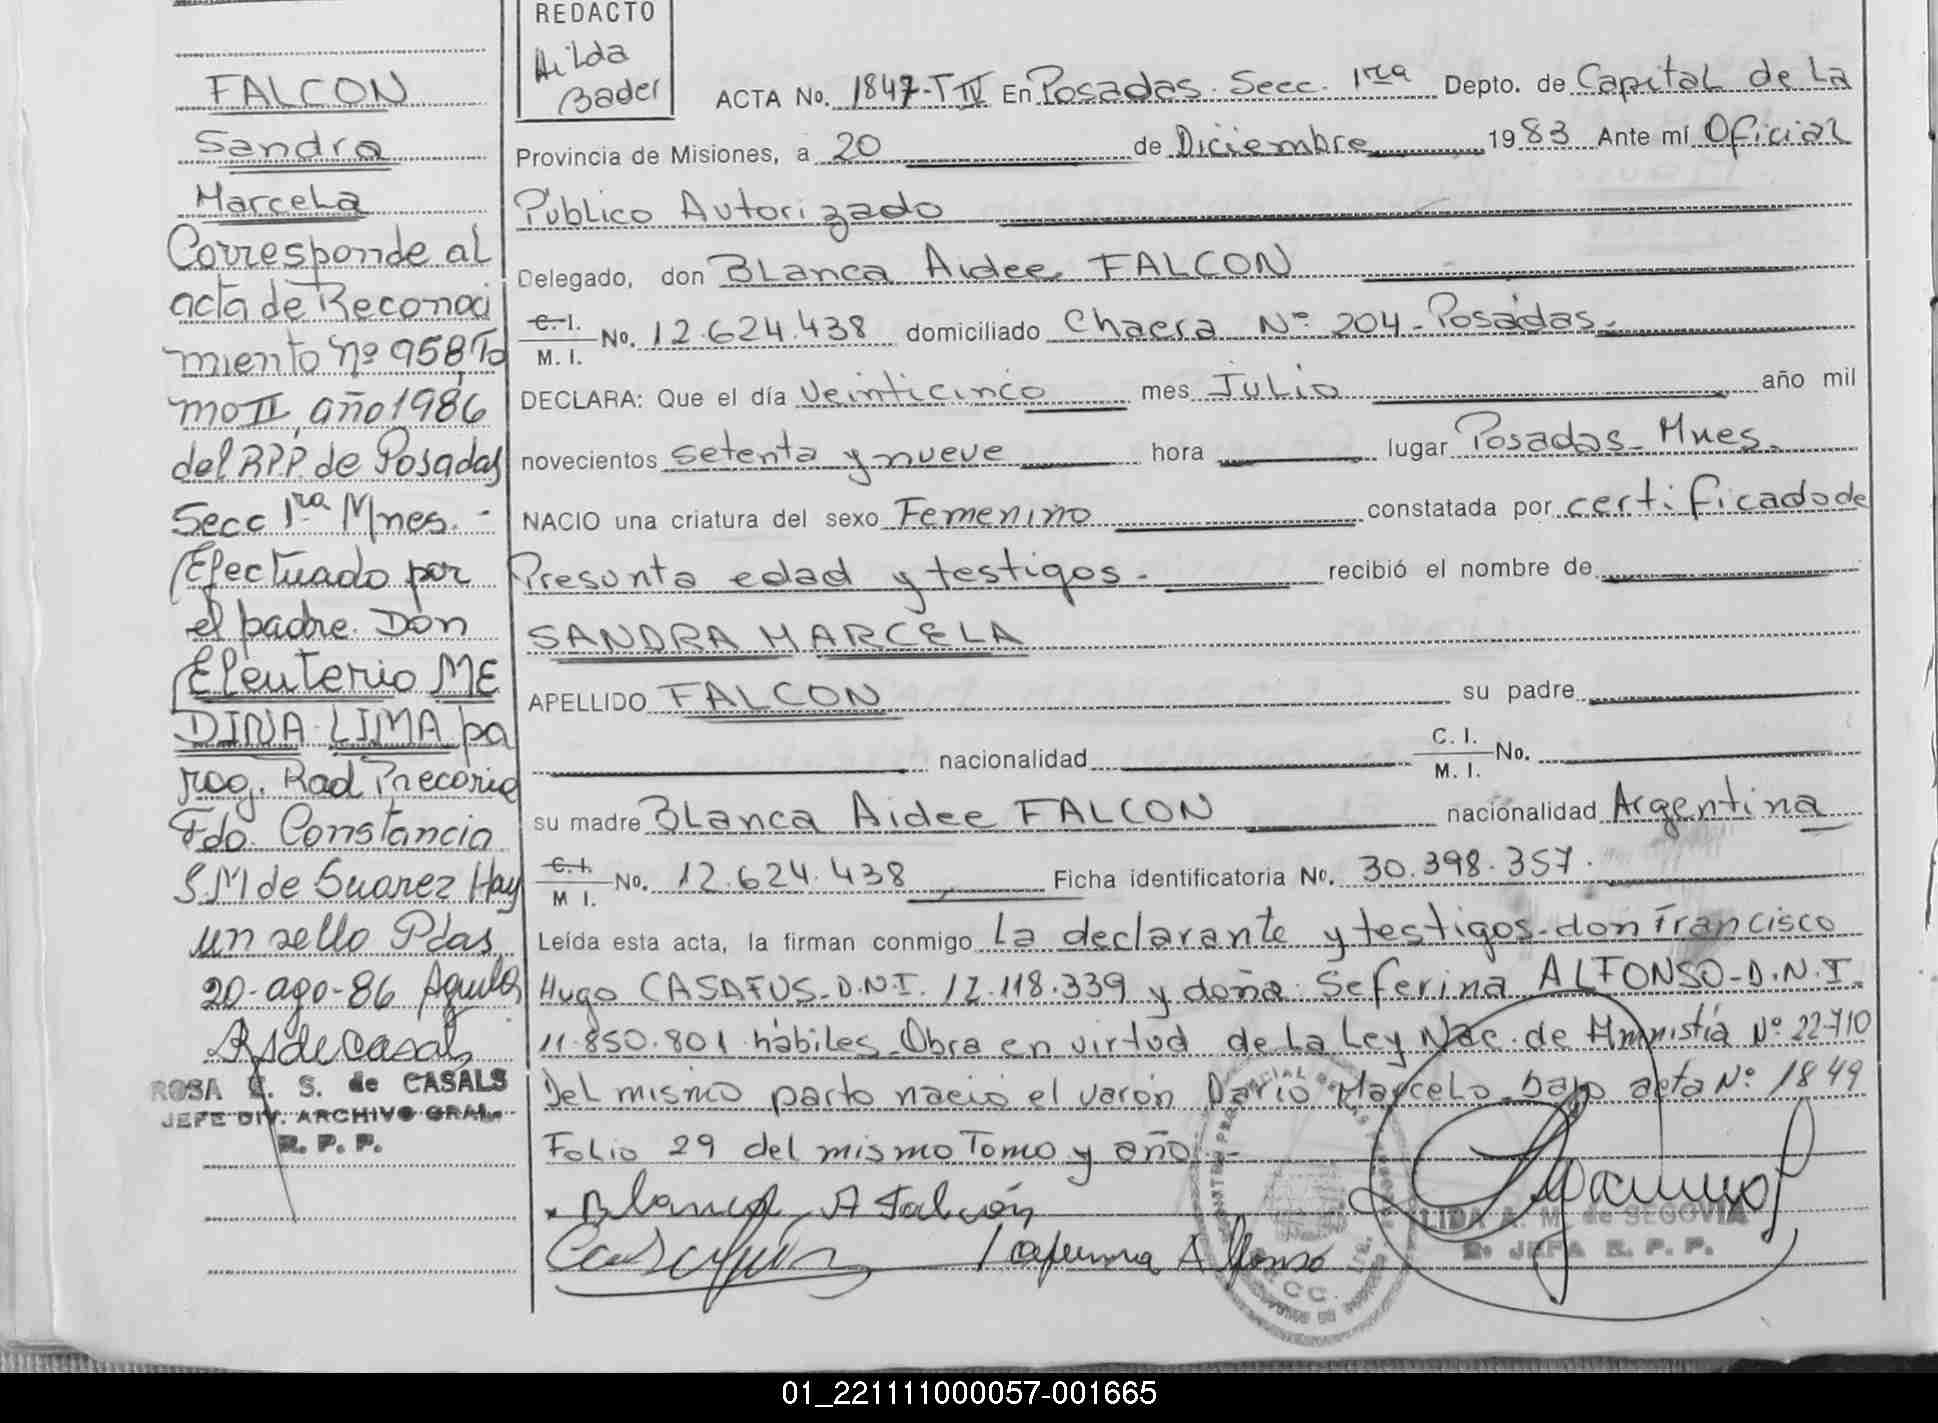 FALCON
Sandra
Marcela
Corresponde al
acta de Reconoci
miento nº 958, To
mo II, año 1986
del R.P.P. de Posadas
Secc 1ra Mnes. -
Efectuado por
el padre. Don
Eleuterio ME
DINA LIMA pa
rag. Rad Precaria
Fdo. Constancia
S.M de Suarez Hay
un sello Pdas
20-ago-86
ROSA E. S. de CASALS
JEFE DIV. ARCHIVO GRAL.
R. P. P.
REDACTO
Hilda
Bader
ACTA No. 1847-T IV En Posadas. Secc. 1ra Depto. de Capital de La
Provincia de Misiones, a 20 de Diciembre 1983 Ante mí Oficial
Público Autorizado
Delegado, don Blanca Aidee FALCON
C. I.
M. I. No. 12.624.438 domiciliado Chacra Nº 204-Posadas-
DECLARA: Que el día veinticinco mes Julio año mil
novecientos setenta y nueve hora lugar Posadas-Mnes.
NACIO una criatura del sexo Femenino constatada por certificado de
Presunta edad y testigos- recibió el nombre de
SANDRA MARCELA
APELLIDO FALCON su padre
nacionalidad C. I.
M. I. No.
su madre Blanca Aidee FALCON nacionalidad Argentina
C. I.
M I. No. 12.624.438 Ficha identificatoria No. 30.398.357.
Leída esta acta, la firman conmigo La declarante y testigos-don Francisco
Hugo CASAFUS-D.N.I. 12.118.339 y doña: Seferina ALFONSO-D.N.I.
11.850.801 hábiles-Obra en virtud de La Ley Nac. de Amnistía Nº 22710
Del mismo parto nació el varón Dario Marcelo bajo acta Nº 1849
Folio 29 del mismo Tomo y año-
Blanca A Falcón
Alfonso
LIDA A. M. de SEGOVIA
JEFA R. P. P.
01_221111000057-001665